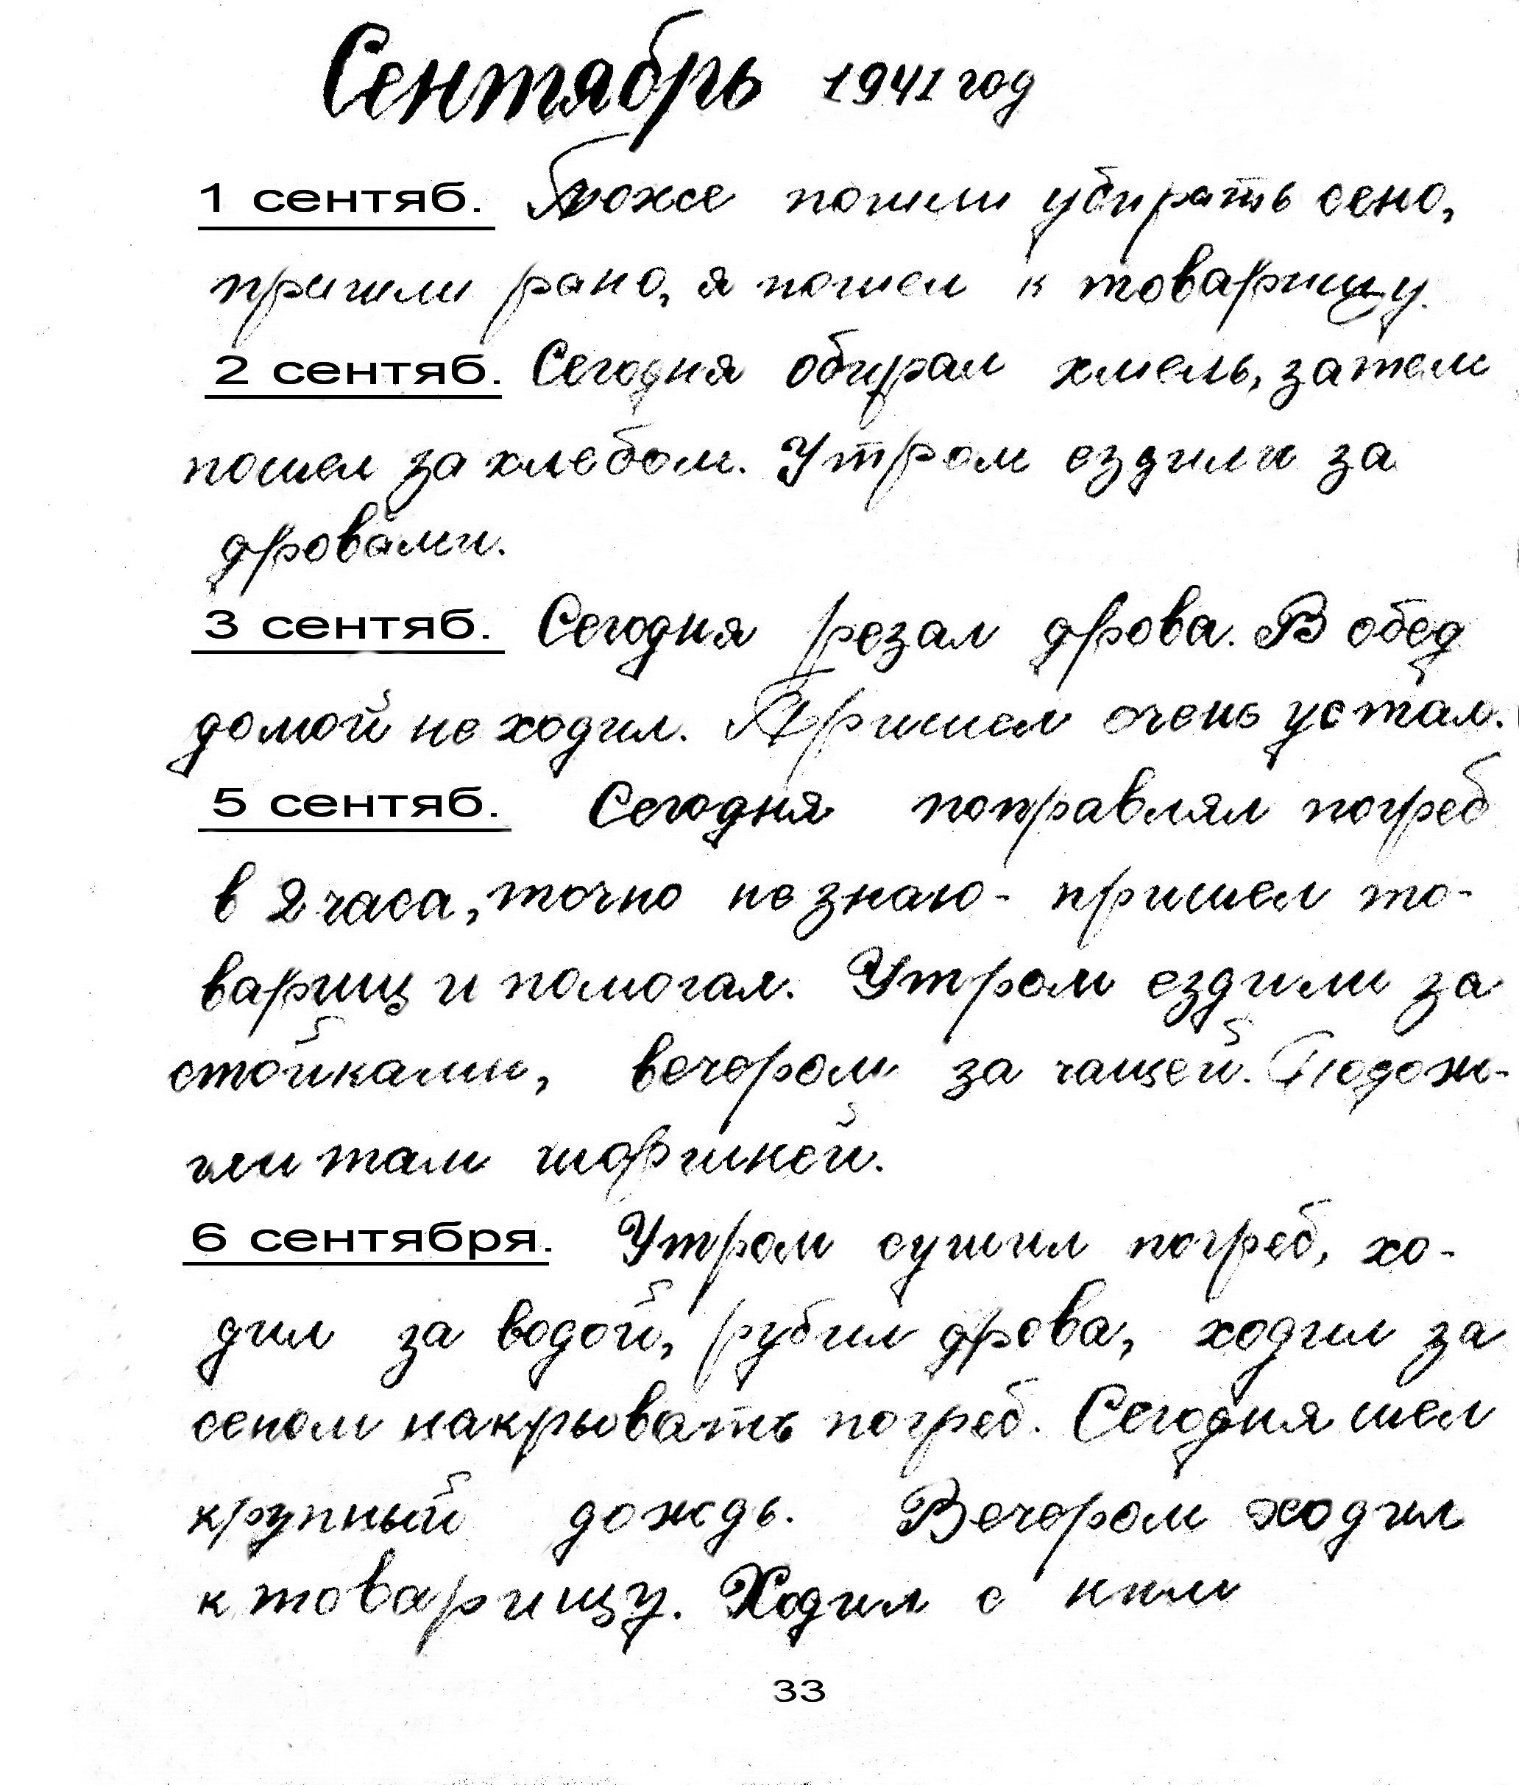 Сентябрь 1941 год
1 сентяб. Тоже пошли убирать сено,
пришли рано, я пошел к товарищу.
2 сентяб. Сегодня обирал хмель, затем
пошел за хлебом. Утром ездили за
дровами.
3 сентяб. Сегодня резал дрова. В обед
домой не ходил. Пришел очень устал.
5 сентяб. Сегодня поправлял погреб
в 2 часа, точно не знаю - пришел то-
варищ и помогал. Утром ездили за
стойками, вечером за чащей. Подож-
гли там шаршкей.
6 сентября. Утром сушил погреб, хо-
дил за водой, рубил дрова, ходил за
сеном накрывать погреб. Сегодня шел
крупный дождь. Вечером ходил
к товарищу. Ходил с ним
33